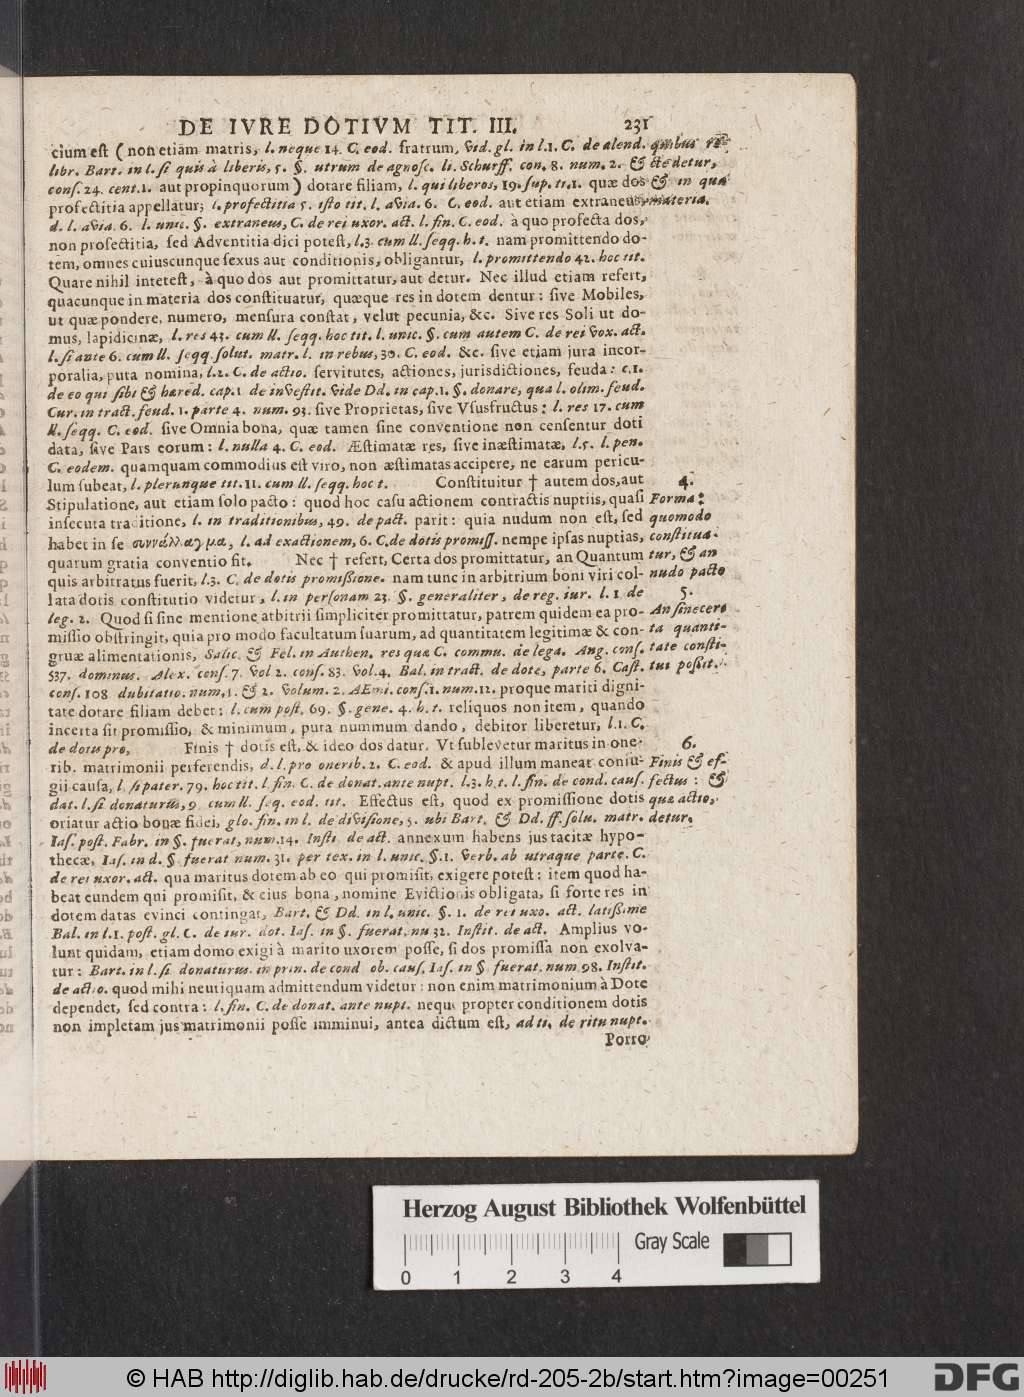 DE IVRE DOTIVM TIT. III. 231
cium est (non etiam matris, l. neque 14. C. eod. fratrum, vid. gl. in l.1. C. de alend.
libr. Bart. in l. si quis à liberis, 5. §. utrum de agnosc. li. Schurff. con. 8. num. 2. &
cons. 24. cent. 1. aut propinquorum) dotare filiam, l. qui liberos, 19. sup. ti. 1. quæ dos
profectitia appellatur; l. profectitia 5. isto tit. l. avia. 6. C. eod. aut etiam extraneus,
d. l. avia. 6. l. unic. §. extraneus, C. de rei uxor. act. l. fin. C. eod. à quo profecta dos,
non profectitia, sed Adventitia dici potest, l.3. cum ll. seqq. h. t. nam promittendo do-
tem, omnes cuiuscunque sexus aut conditionis, obligantur, l. promittendo 42. hoc tit.
Quare nihil interest, à quo dos aut promittatur, aut detur. Nec illud etiam refert,
quacunque in materia dos constituatur, quæque res in dotem dentur: sive Mobiles,
ut quæ pondere, numero, mensura constat, velut pecunia, &c. Sive res Soli ut do-
mus, lapidicinæ, l. res 43. cum ll. seqq. hoc tit. l. unic. §. cum autem C. de rei vox. act.
l. si ante 6. cum ll. seqq. solut. matr. l. in rebus, 30. C. eod. &c. sive etiam jura incor-
poralia, puta nomina, l.2. C. de actio. servitutes, actiones, jurisdictiones, feuda: c.1.
de eo qui sibi & hæred. cap. 1 de investit. vide Dd. in cap. 1. §. donare, qua l. olim. feud.
Cur. in tract. feud. 1. parte 4. num. 93. sive Proprietas, sive Vsusfructus: l. res 17. cum
ll. seqq. C. eod. sive Omnia bona, quæ tamen sine conventione non censentur doti
data, sive Pars eorum: l. nulla 4. C. eod. Æstimatæ res, sive inæstimatæ, l.5. l. pen.
C. eodem. quamquam commodius est viro, non æstimatas accipere, ne earum pericu-
lum subeat, l. plerunque tit. 11. cum ll. seqq. hoc t. Constituitur † autem dos, aut
Stipulatione, aut etiam solo pacto: quod hoc casu actionem contractis nuptiis, quasi
insecuta traditione, l. in traditionibus, 49. de pact. parit: quia nudum non est, sed
habet in se συνάλλαγμα, l. ad exactionem, 6. C. de dotis promiss. nempe ipsas nuptias,
quarum gratia conventio fit. Nec † refert, Certa dos promittatur, an Quantum
quis arbitratus fuerit, l.3. C. de dotis promissione. nam tunc in arbitrium boni viri col-
lata dotis constitutio videtur, l. in personam 23. §. generaliter, de reg. iur. l. 1 de
leg. 2. Quod si sine mentione arbitrii simpliciter promittatur, patrem quidem ea pro-
missio obstringit, quia pro modo facultatum suarum, ad quantitatem legitimæ & con-
gruæ alimentationis, Salic. & Fel. in Authen. res quæ C. commu. de lega. Ang. cons.
537. dominus. Alex. cons. 7. vol 2. cons. 83. vol. 4. Bal. in tract. de dote, parte 6. Cast.
cons. 108 dubitatio. num. 1. & 2. volum. 2. AEmi. cons. 1. num. 12. proque mariti digni-
tate dotare filiam debet: l. cum post. 69. §. gene. 4. h. t. reliquos non item, quando
incerta sit promissio, & minimum, puta nummum dando, debitor liberetur, l.1. C.
de dotis pro, Finis † dotis est, & ideo dos datur. Vt sublevetur maritus in one-
rib. matrimonii perferendis, d. l. pro onerib. 2. C. eod. & apud illum maneat coniu-
gii causa, l. si pater. 79. hoc tit. l. fin. C. de donat. ante nupt. l.3. h. t. l. fin. de cond. caus.
dat. l. si donaturus, 9 cum ll. seq. eod. tit. Effectus est, quod ex promissione dotis
oriatur actio bonæ fidei, glo. fin. in l. de divisione, 5. ubi Bart. & Dd. ff. solu. matr.
Ias. post. Fabr. in §. fuerat, num. 14. Insti. de act. annexum habens jus tacitæ hypo-
thecæ, Ias. in d. § fuerat num. 31. per tex. in l. unic. §. 1. verb. ab utraque parte. C.
de rei uxor. act. qua maritus dotem ab eo qui promisit, exigere potest: item quod ha-
beat eundem qui promisit, & eius bona, nomine Evictionis obligata, si forte res in
dotem datas evinci contingat, Bart. & Dd. in l. unic. §. 1. de rei uxo. act. latissime
Bal. in l. 1. post. gl. C. de iur. dot. Ias. in §. fuerat, nu 32. Instit. de act. Amplius vo-
lunt quidam, etiam domo exigi à marito uxorem posse, si dos promissa non exolva-
tur: Bart. in l. si donaturus. in prin. de cond ob. caus. Ias. in § fuerat. num. 98. Instit.
de actio. quod mihi neutiquam admittendum videtur: non enim matrimonium à Dote
dependet, sed contra: l. fin. C. de donat. ante nupt. neque propter conditionem dotis
non impletam jus matrimonii posse imminui, antea dictum est, ad ti. de ritu nupt.
Porro
quibus re-
ctè detur,
& in qua
materia.
4.
Forma:
quomodo
constitua-
tur, & an
nudo pacto
5.
An sine cer-
ta quanti-
tate consti-
tui possit.
6.
Finis & ef-
fectus: &
quæ actio,
detur.
Herzog August Bibliothek Wolfenbüttel
Gray Scale
0 1 2 3 4
© HAB http://diglib.hab.de/drucke/rd-205-2b/start.htm?image=00251
DFG